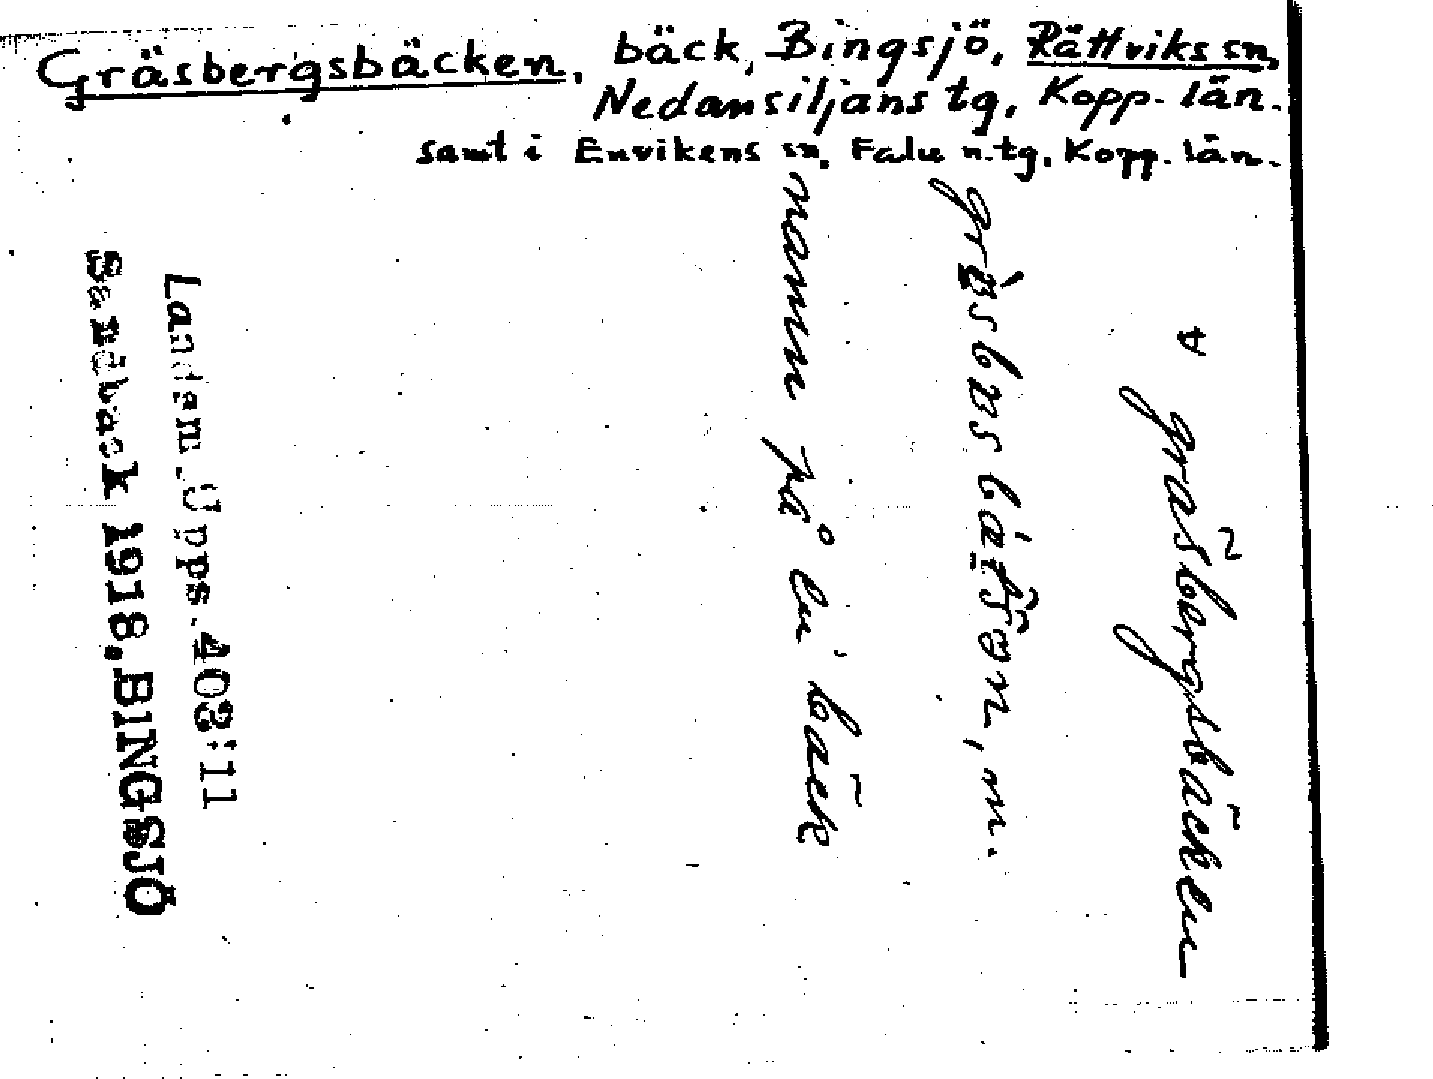 Gräsbergsbäcken, bäck, Bingsjö, Rättviks sn,
Nedansiljans tg, Kopp. län.
samt i Envikens sn, Falu n. tg, Kopp. län.
A gräsbergsbäcken 2
namn på en bäck
Landsm. Upps. 402:11
Sandbäck 1918. BINGSJÖ